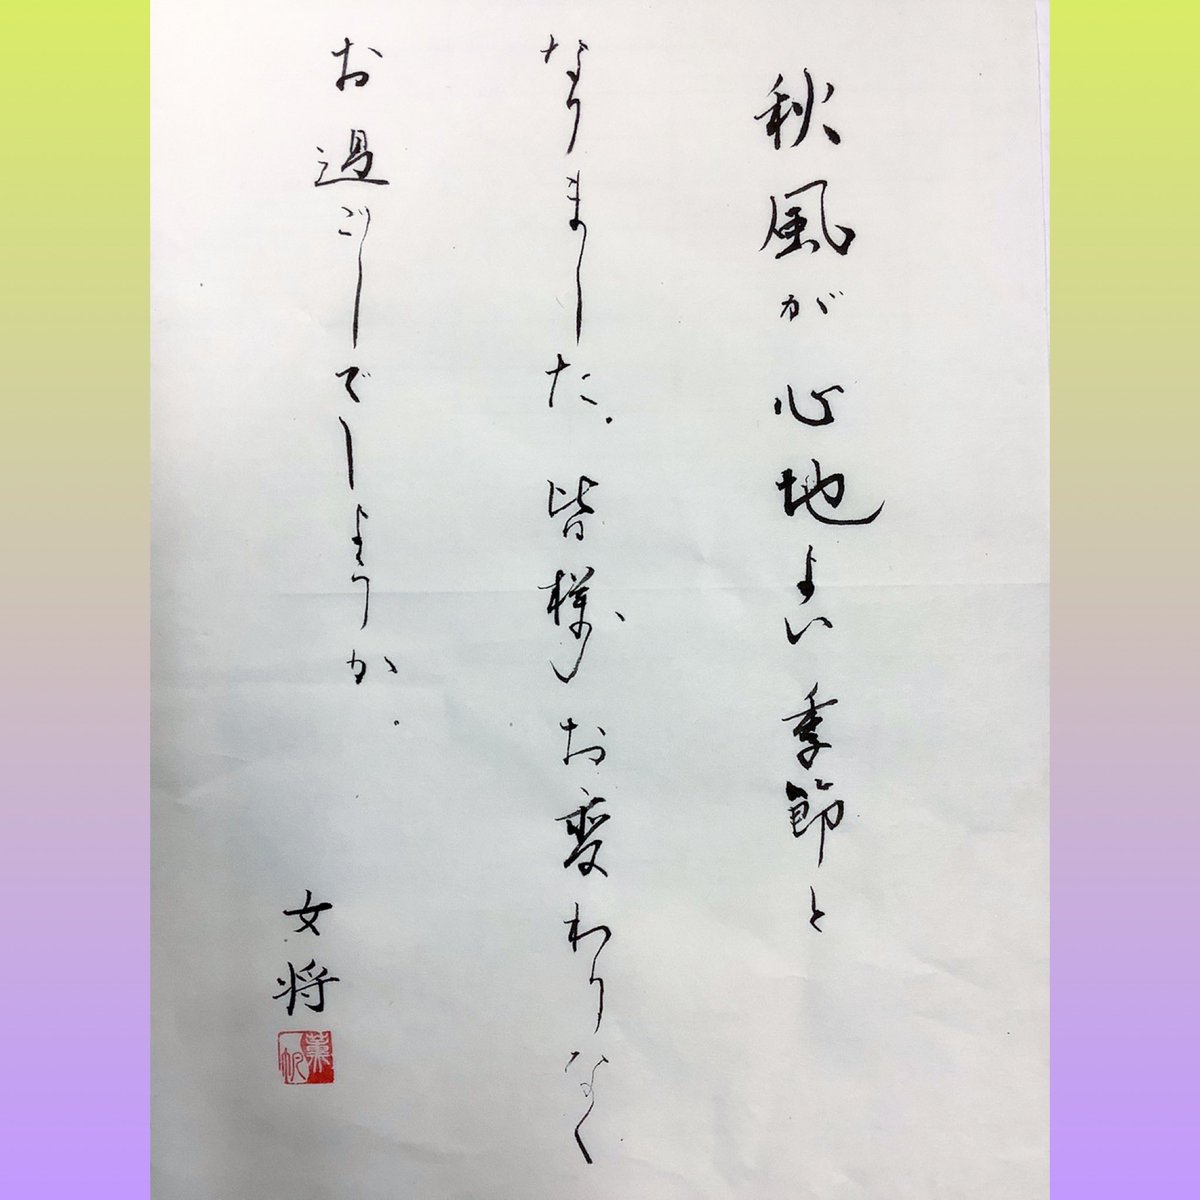 秋風が心地よい季節と
なりました。皆様お変わりなく
お過ごしでしょうか。
女将
薫帆